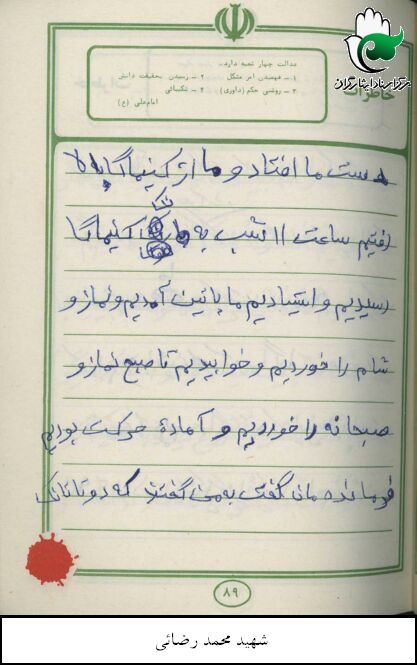 مرکز اسناد ایثارگران
خاطرات
عدالت چهار شعبه دارد.
۱ - فهمیدن امر مشکل ۲ - رسیدن بحقیقت دانش
۳ - روشنی حکم (داوری) ۴ - شکیبائی
امام‌علی (ع)
دست ما افتاد و ما از کنیماگا بالا
رفتیم ساعت ۱۱ شب به کنیماگا
تک
رسیدیم و ایستادیم ما پائین آمدیم و نماز و
شام را خوردیم و خوابیدیم تا صبح نماز و
صبحانه را خوردیم و آمادهٔ حرکت بودیم
فرمانده مان گفت به من گفتند که دو تا تانک
۸۹
شهید محمد رضائی